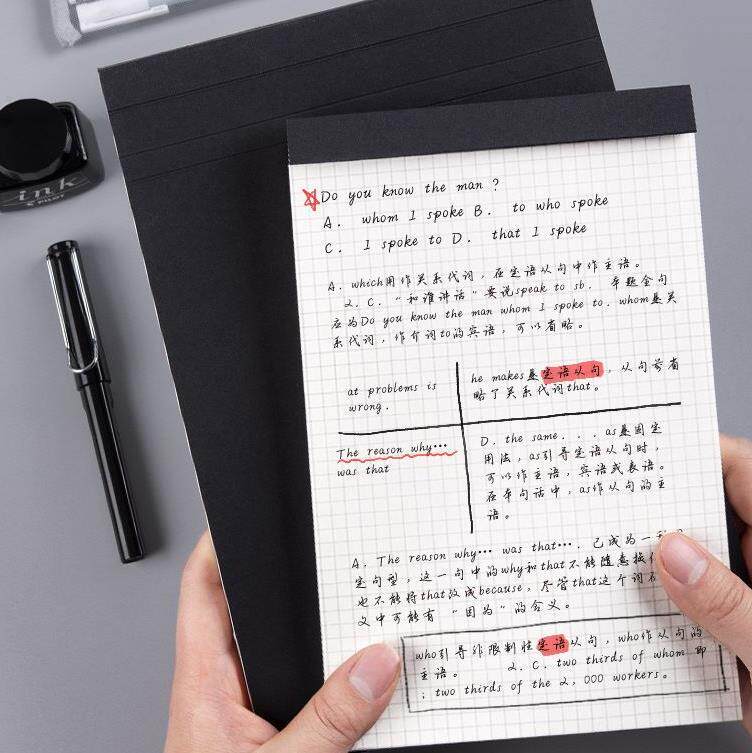 ink
PILOT
Do you know the man ?
A. whom I spoke B. to who spoke
C. I spoke to D. that I spoke
A. which用作关系代词，在定语从句中作主语。
2. C. “和谁讲话”要说speak to sb. 本题全句
应为Do you know the man whom I spoke to. whom是关
系代词，作介词to的宾语，可以省略。
at problems is
wrong.
he makes是定语从句，从句前省
略了关系代词that。
The reason why…
was that
D. the same. . . as是固定
用法，as引导定语从句时，
可以作主语，宾语或表语。
在本句话中，as作从句的主
语。
A. The reason why… was that…. 已成为一
定句型，这一句中的why和that不能随意换
也不能将that改成because，尽管that这个词
义中可能有 “因为”的含义。
who引导非限制性定语从句，who作从句的
主语。 2. C. two thirds of whom 即
: two thirds of the 2, 000 workers。